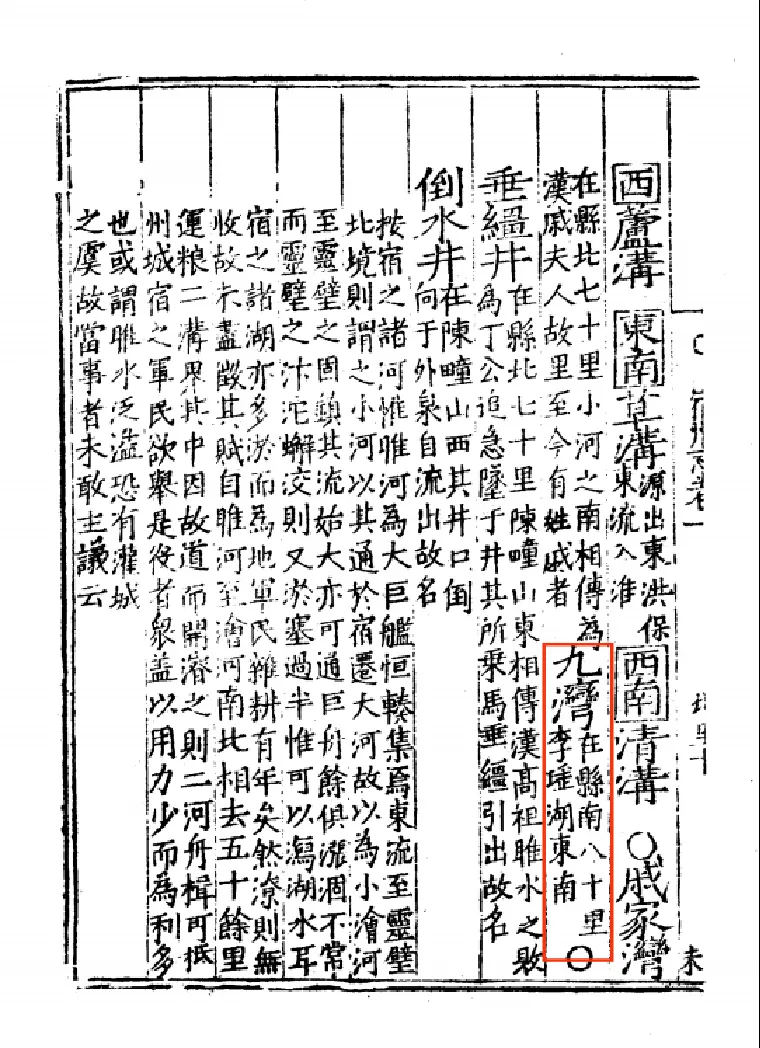 西蘆溝 東南草溝 源出東洪保
東流入淮
西南清溝 〇戚家灣
在縣北七十里小河之南相傳為
漢戚夫人故里至今有姓戚者
九灣 在縣南八十里
李瑤湖東南 〇
垂繮井 在縣北七十里陳疃山東相傳漢高祖睢水之敗
為丁公追急墜于井其所乘馬垂繮引出故名
倒水井 在陳疃山西其井口倒
向于外泉自流出故名
按宿之諸河惟睢河為大巨艦恒輳集焉東流至靈壁
北境則謂之小河以其通於宿遷大河故以為小澮河
至靈壁之固鎮其流始大亦可通巨舟餘俱漲涸不常
而靈壁之汴沱蠏洨則又淤塞過半惟可以瀉湖水耳
宿之諸湖亦多淤而為地軍民雜耕有年矣然潦則無
收故未盡徵其賦自睢河至澮河南北相去五十餘里
運粮二溝界其中因故道而開濬之則二河舟楫可抵
州城宿之軍民欲舉是役者衆盖以用力少而為利多
也或謂睢水泛溢恐有灌城
之虞故當事者未敢主議云